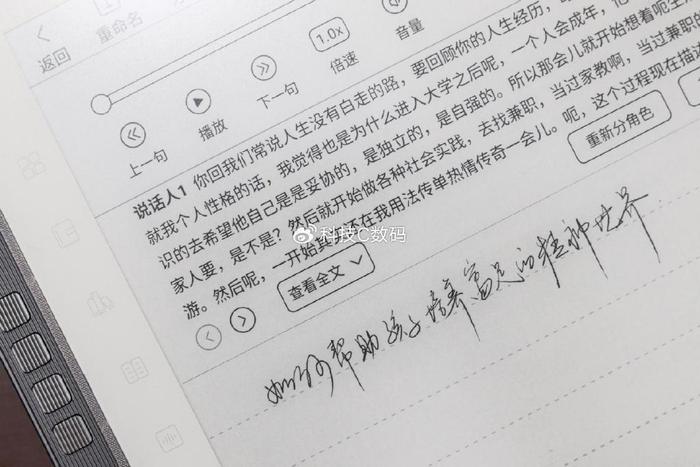 返回
重命名
上一句
播放
下一句
1.0x
倍速
音量
说话人1 你回我们常说人生没有白走的路，要回顾你的人生经历，
就我个人性格的话，我觉得也是为什么进入大学之后呢，一个人会成年，
识的去希望他自己是是妥协的，是独立的，是自强的。所以那会儿就开始想着呢
家人要，是不是？然后就开始做各种社会实践，去找兼职，当过家教啊，当过兼职
游。然后呢，一开始其实还在我用法传单热情传奇一会儿。呃，这个过程现在描
查看全文
重新分角色
如何帮助孩子培养富足的精神世界
科技C数码